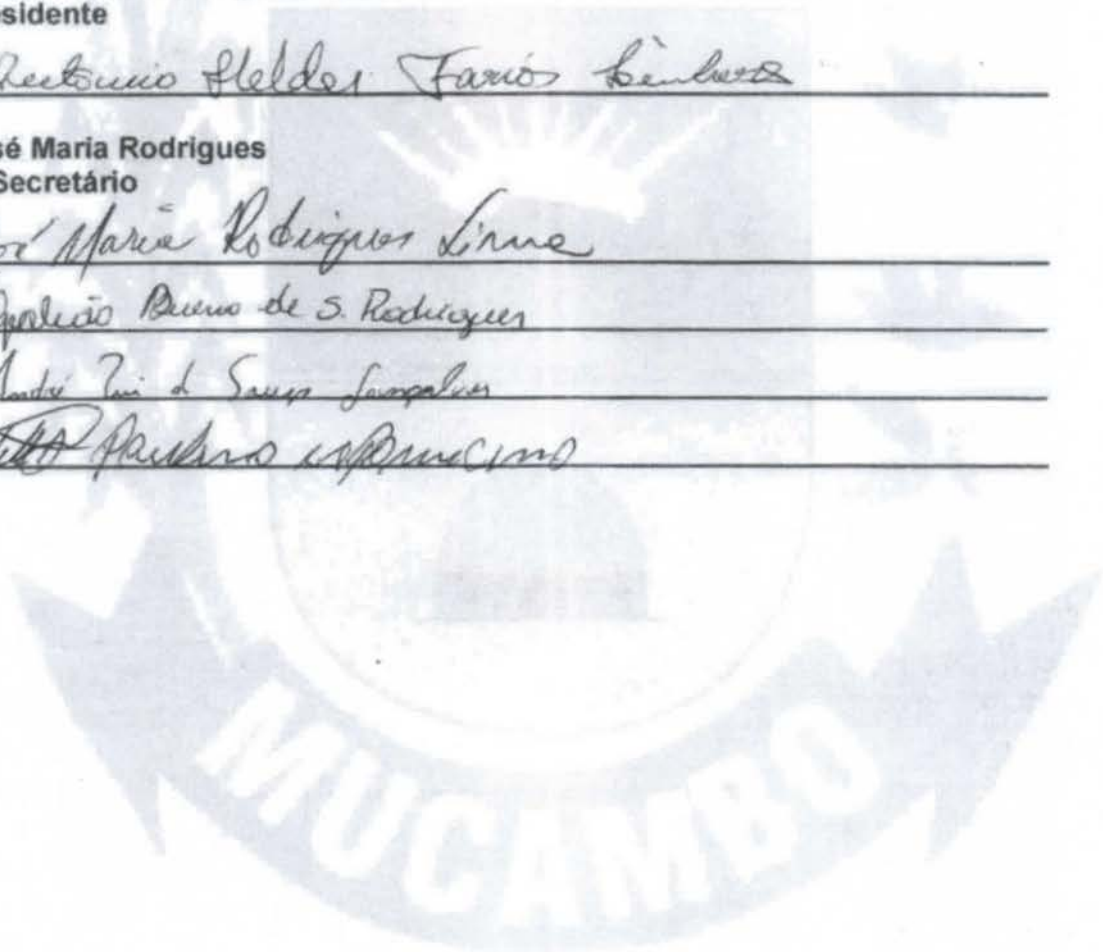 esidente
Antonio Helder Farias
sé Maria Rodrigues
Secretário
sé Maria Rodrigues Lima
Bueno de S. Rodrigues
André de Souza Gonçalves
Paulino
MUCAMBO